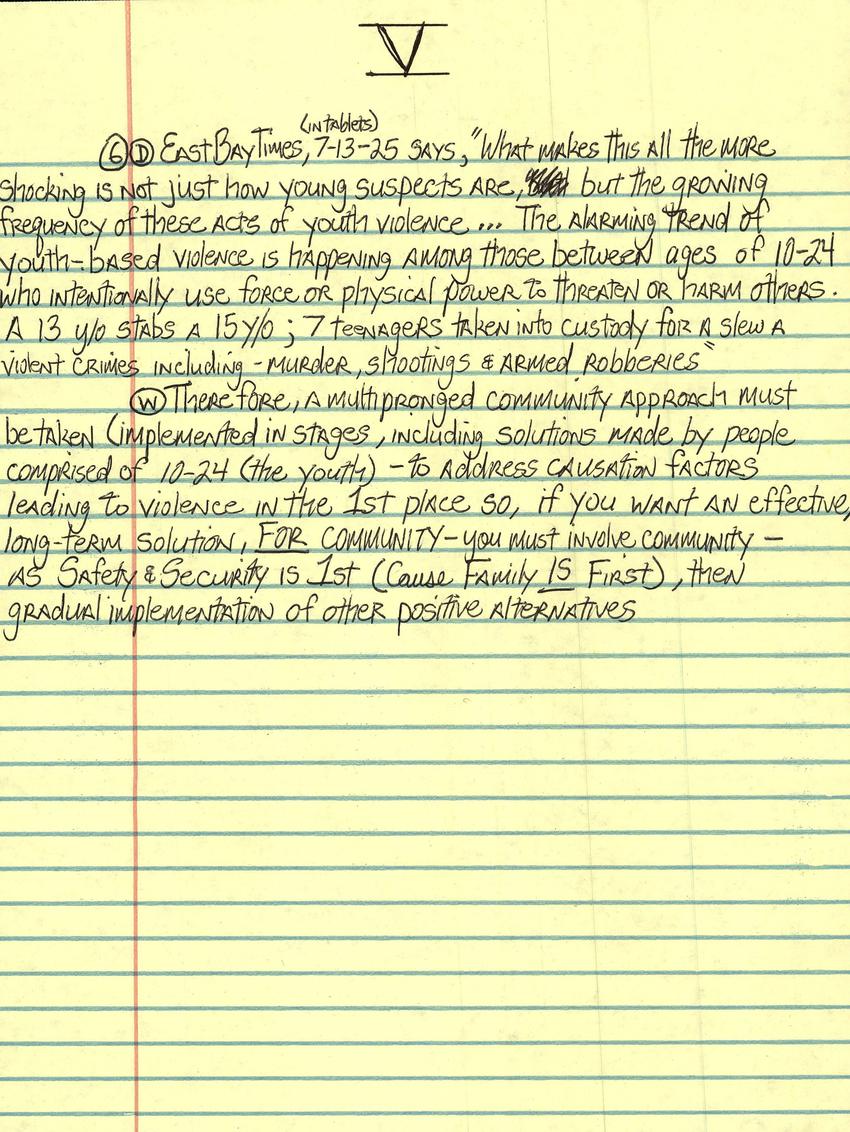 V
(in tablets)
6 D East Bay Times, 7-13-25 says, "What makes this all the more
shocking is not just how young suspects are, but the growing
frequency of these acts of youth violence ... The alarming trend of
youth-based violence is happening among those between ages of 10-24
who intentionally use force or physical power to threaten or harm others.
A 13 y/o stabs a 15 y/o ; 7 teenagers taken into custody for a slew a
violent crimes including - murder, shootings & armed robberies"
W Therefore, a multipronged community approach must
be taken (implemented in stages, including solutions made by people
comprised of 10-24 (the youth) - to address causation factors
leading to violence in the 1st place so, if you want an effective,
long-term solution, FOR community - you must involve community -
as Safety & Security is 1st (Cause Family IS First), then
gradual implementation of other positive alternatives